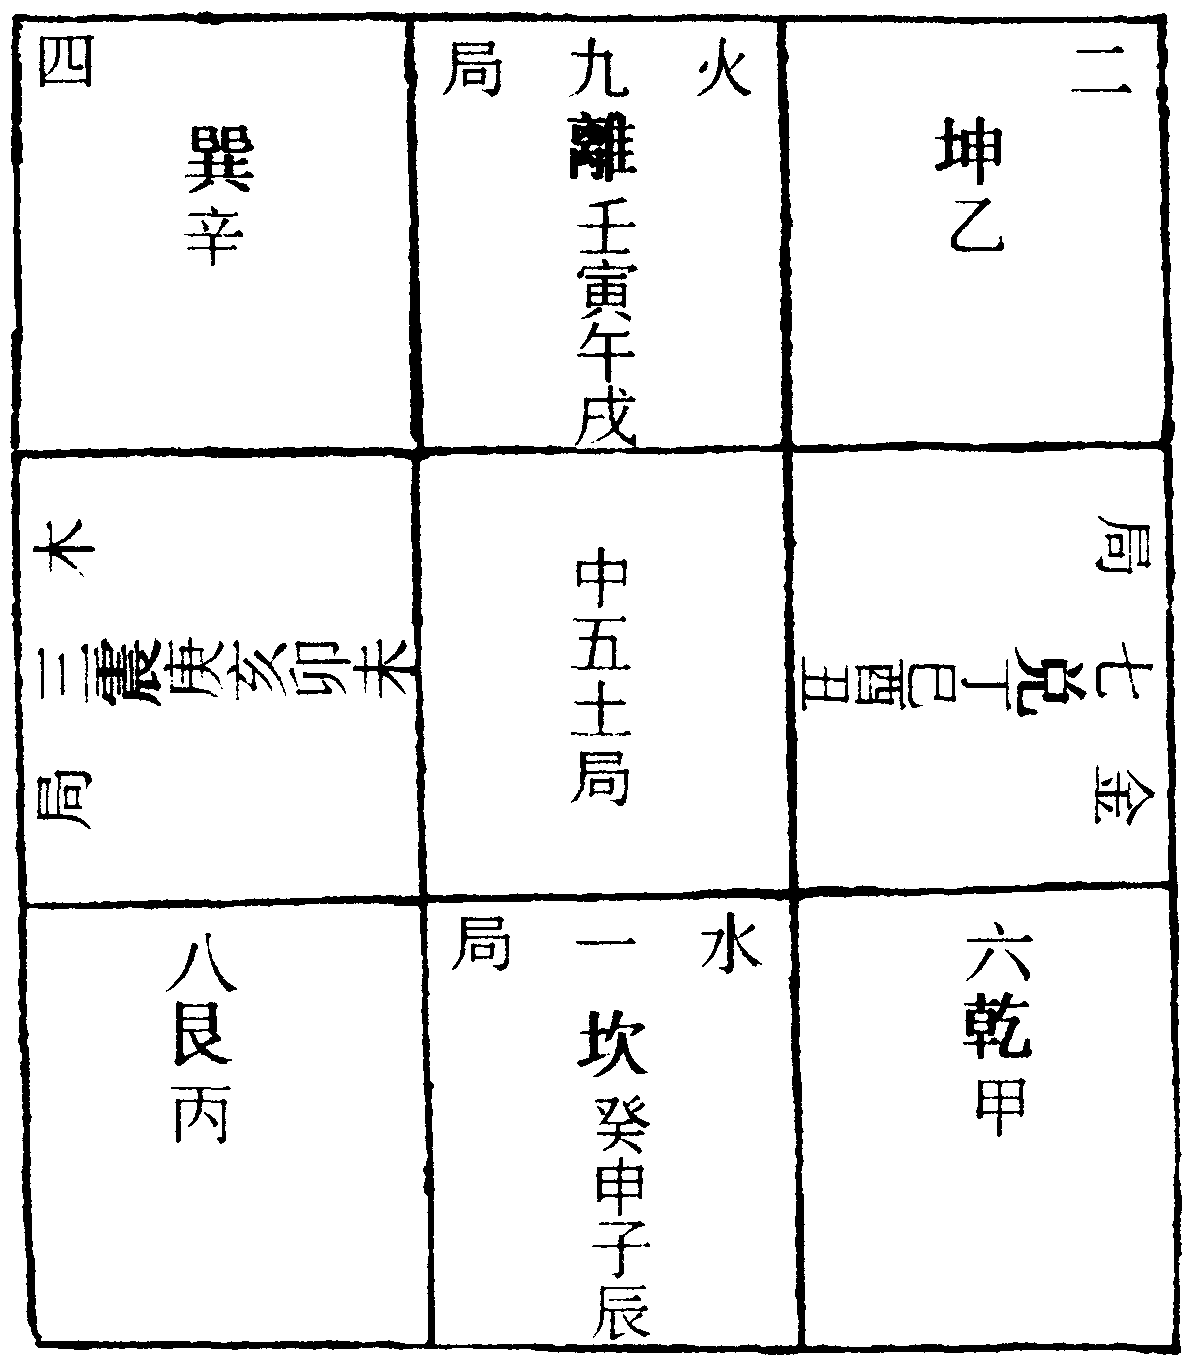 二
坤乙
火
九離壬寅午戌
局
四
巽辛
金
七兌丁巳酉丑
局
中五土局
木
三震庚亥卯未
局
六乾甲
水
一坎癸申子辰
局
八艮丙